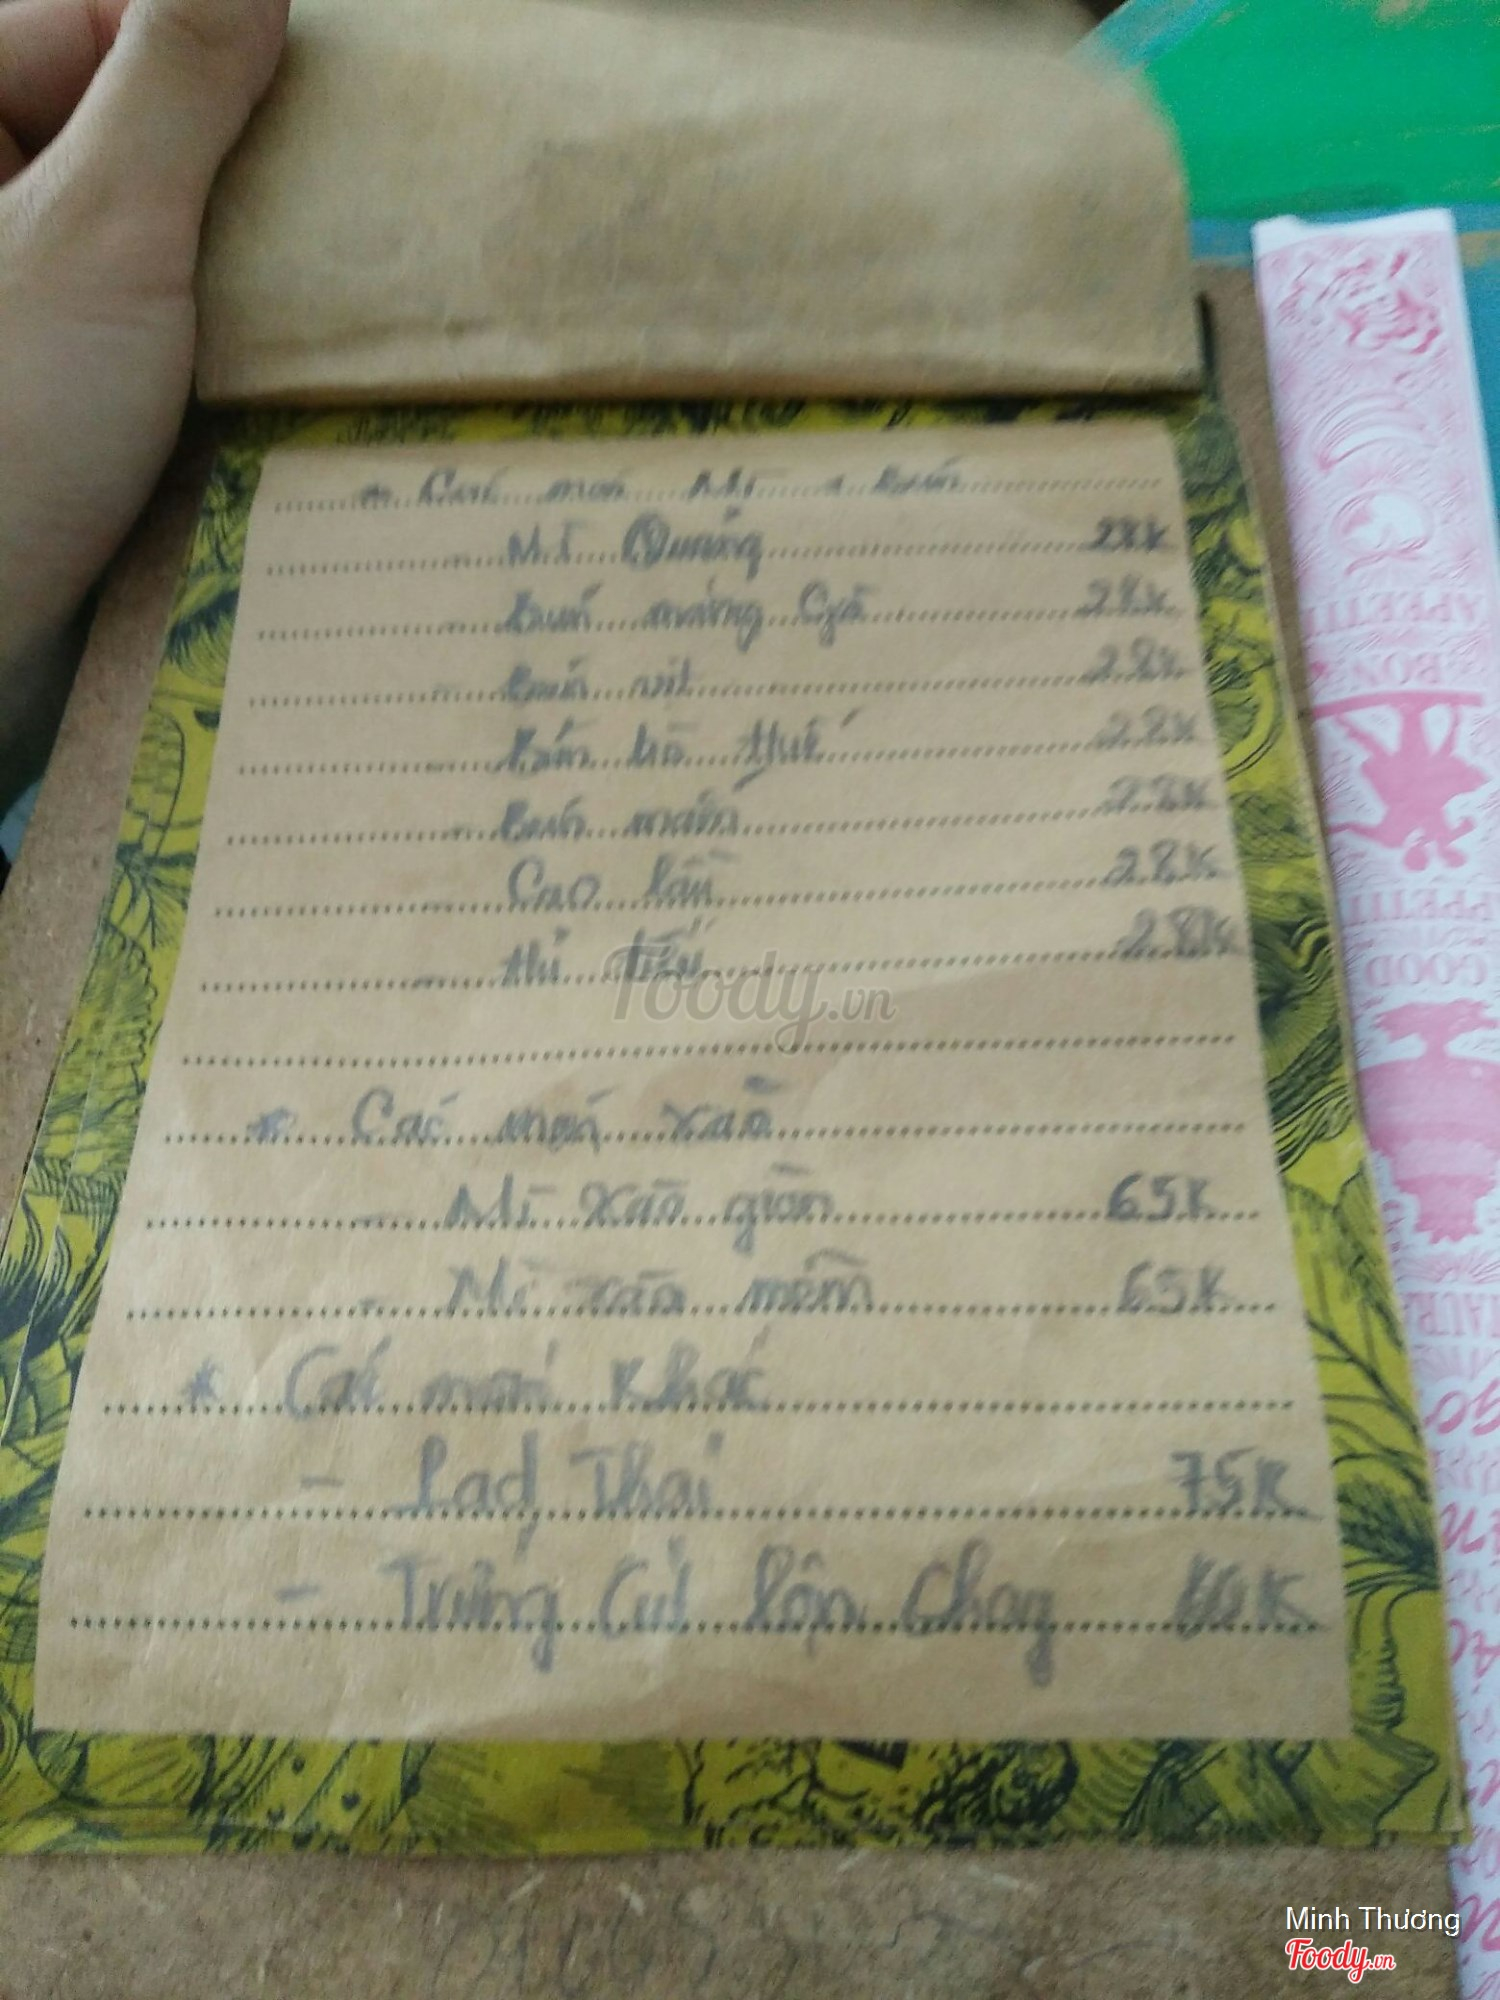 * Các món Mì + Bún
- Mì Quảng 28K
- Bún măng Gà 28K
- Bún vịt 28K
- Bún bò Huế 28K
- Bún mắm 28K
- Cao lầu 28K
- Hủ tiếu 28K
* Các món xào
- Mì xào giòn 65K
- Mì xào mềm 65K
* Các món khác
- Pad Thai 75K
- Trứng Cút lộn Chay
Foody.vn
APPETIT
BON
GOOD
Minh Thương
Foody.vn